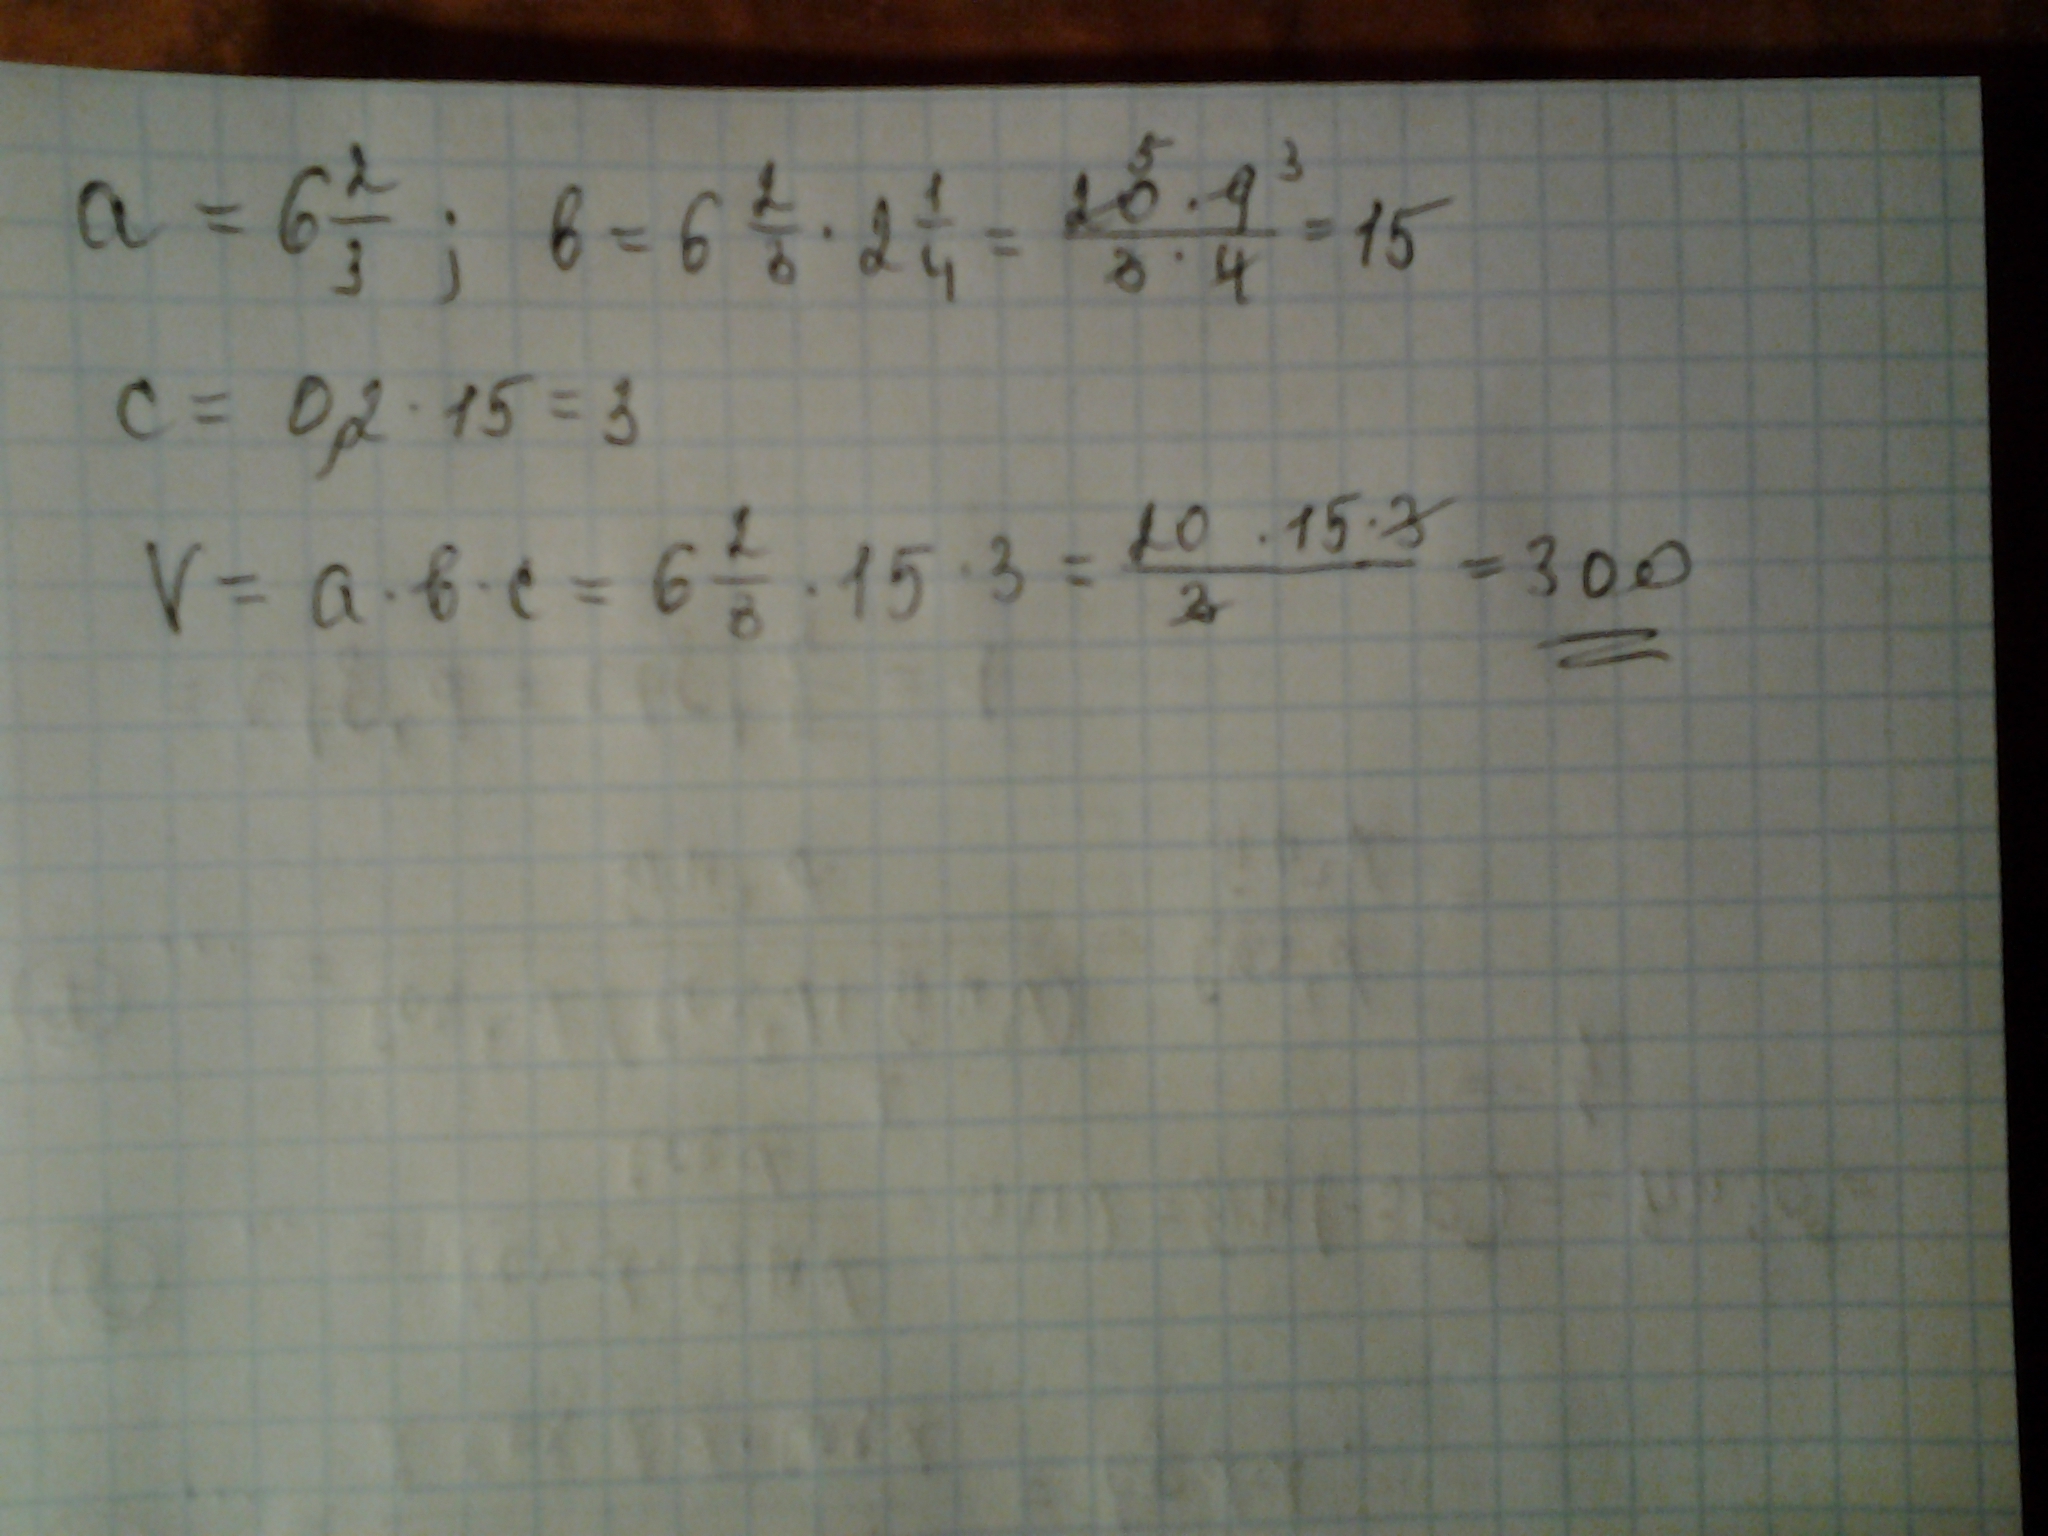 a = 6 2/3 ; в = 6 2/3 · 2 1/4 = (20⁵ · 9³)/(3 · 4) = 15
c = 0,2 · 15 = 3
V = a · в · c = 6 2/3 · 15 · 3 = (20 · 15 · 3)/3 = 300